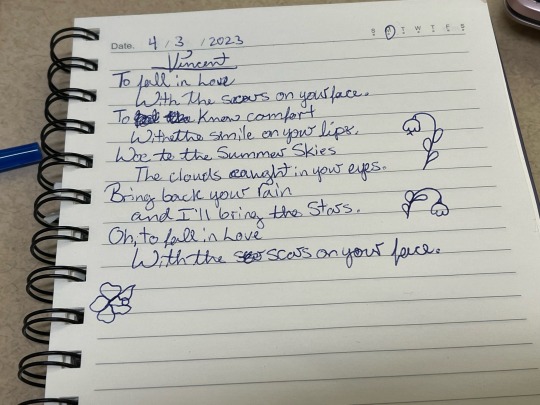 Date. 4 / 3 / 2023
S M T W T F S
Vincent
To fall in Love
With the scars on your face.
To know comfort
With the smile on your lips.
Woe to the Summer Skies
The clouds caught in your eyes.
Bring back your rain
and I'll bring the Stars.
Oh, to fall in Love
With the scars on your face.